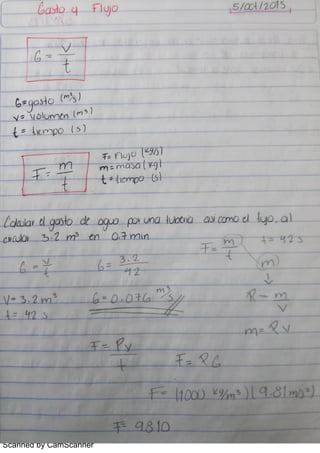 Gasto y Flujo
5/oct/2015
G = v/t
G= gasto (m³/s)
v= volumen (m³)
t = tiempo (s)
F = m/t
F= Flujo (kg/s)
m= masa (kg)
t= tiempo (s)
Calcular el gasto de agua por una tuberia asi como el flujo, al
circular 3.2 m³ en 0.7 min
G = v/t
G= 3.2/42
F= m/t
t= 42 s
V= 3.2 m³
t= 42 s
G= 0.076 m³/s
m
P = m
m= Pv
F= Pv/t
F= PG
F= (1000 kg/m³)(9.81 m/s²)
F= 9810
Scanned by CamScanner